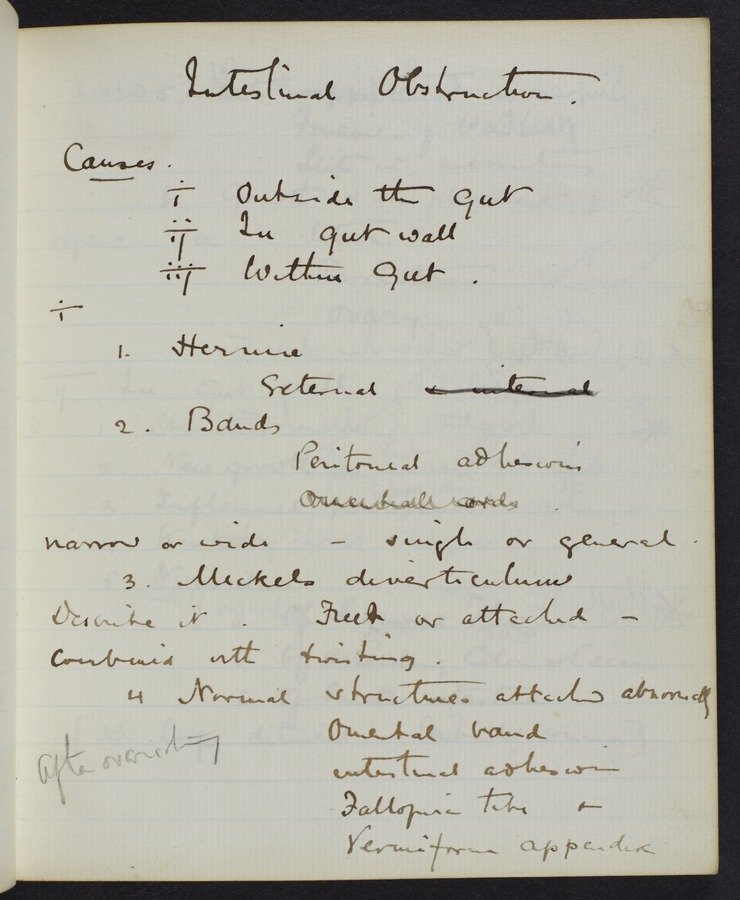 Intestinal Obstruction.
Causes.
i Outside the gut
ii In gut wall
iii Within Gut.
i
1. Herniae
External & internal
2. Bands
Peritoneal adhesions
Omental cords.
narrow or wide - single or general.
3. Meckels diverticulum
Describe it. Free or attached -
Combined with twisting.
4 Normal structures attached abnormally
Omental band
After
intestinal adhesion
Fallopian tube or
Vermiform appendix